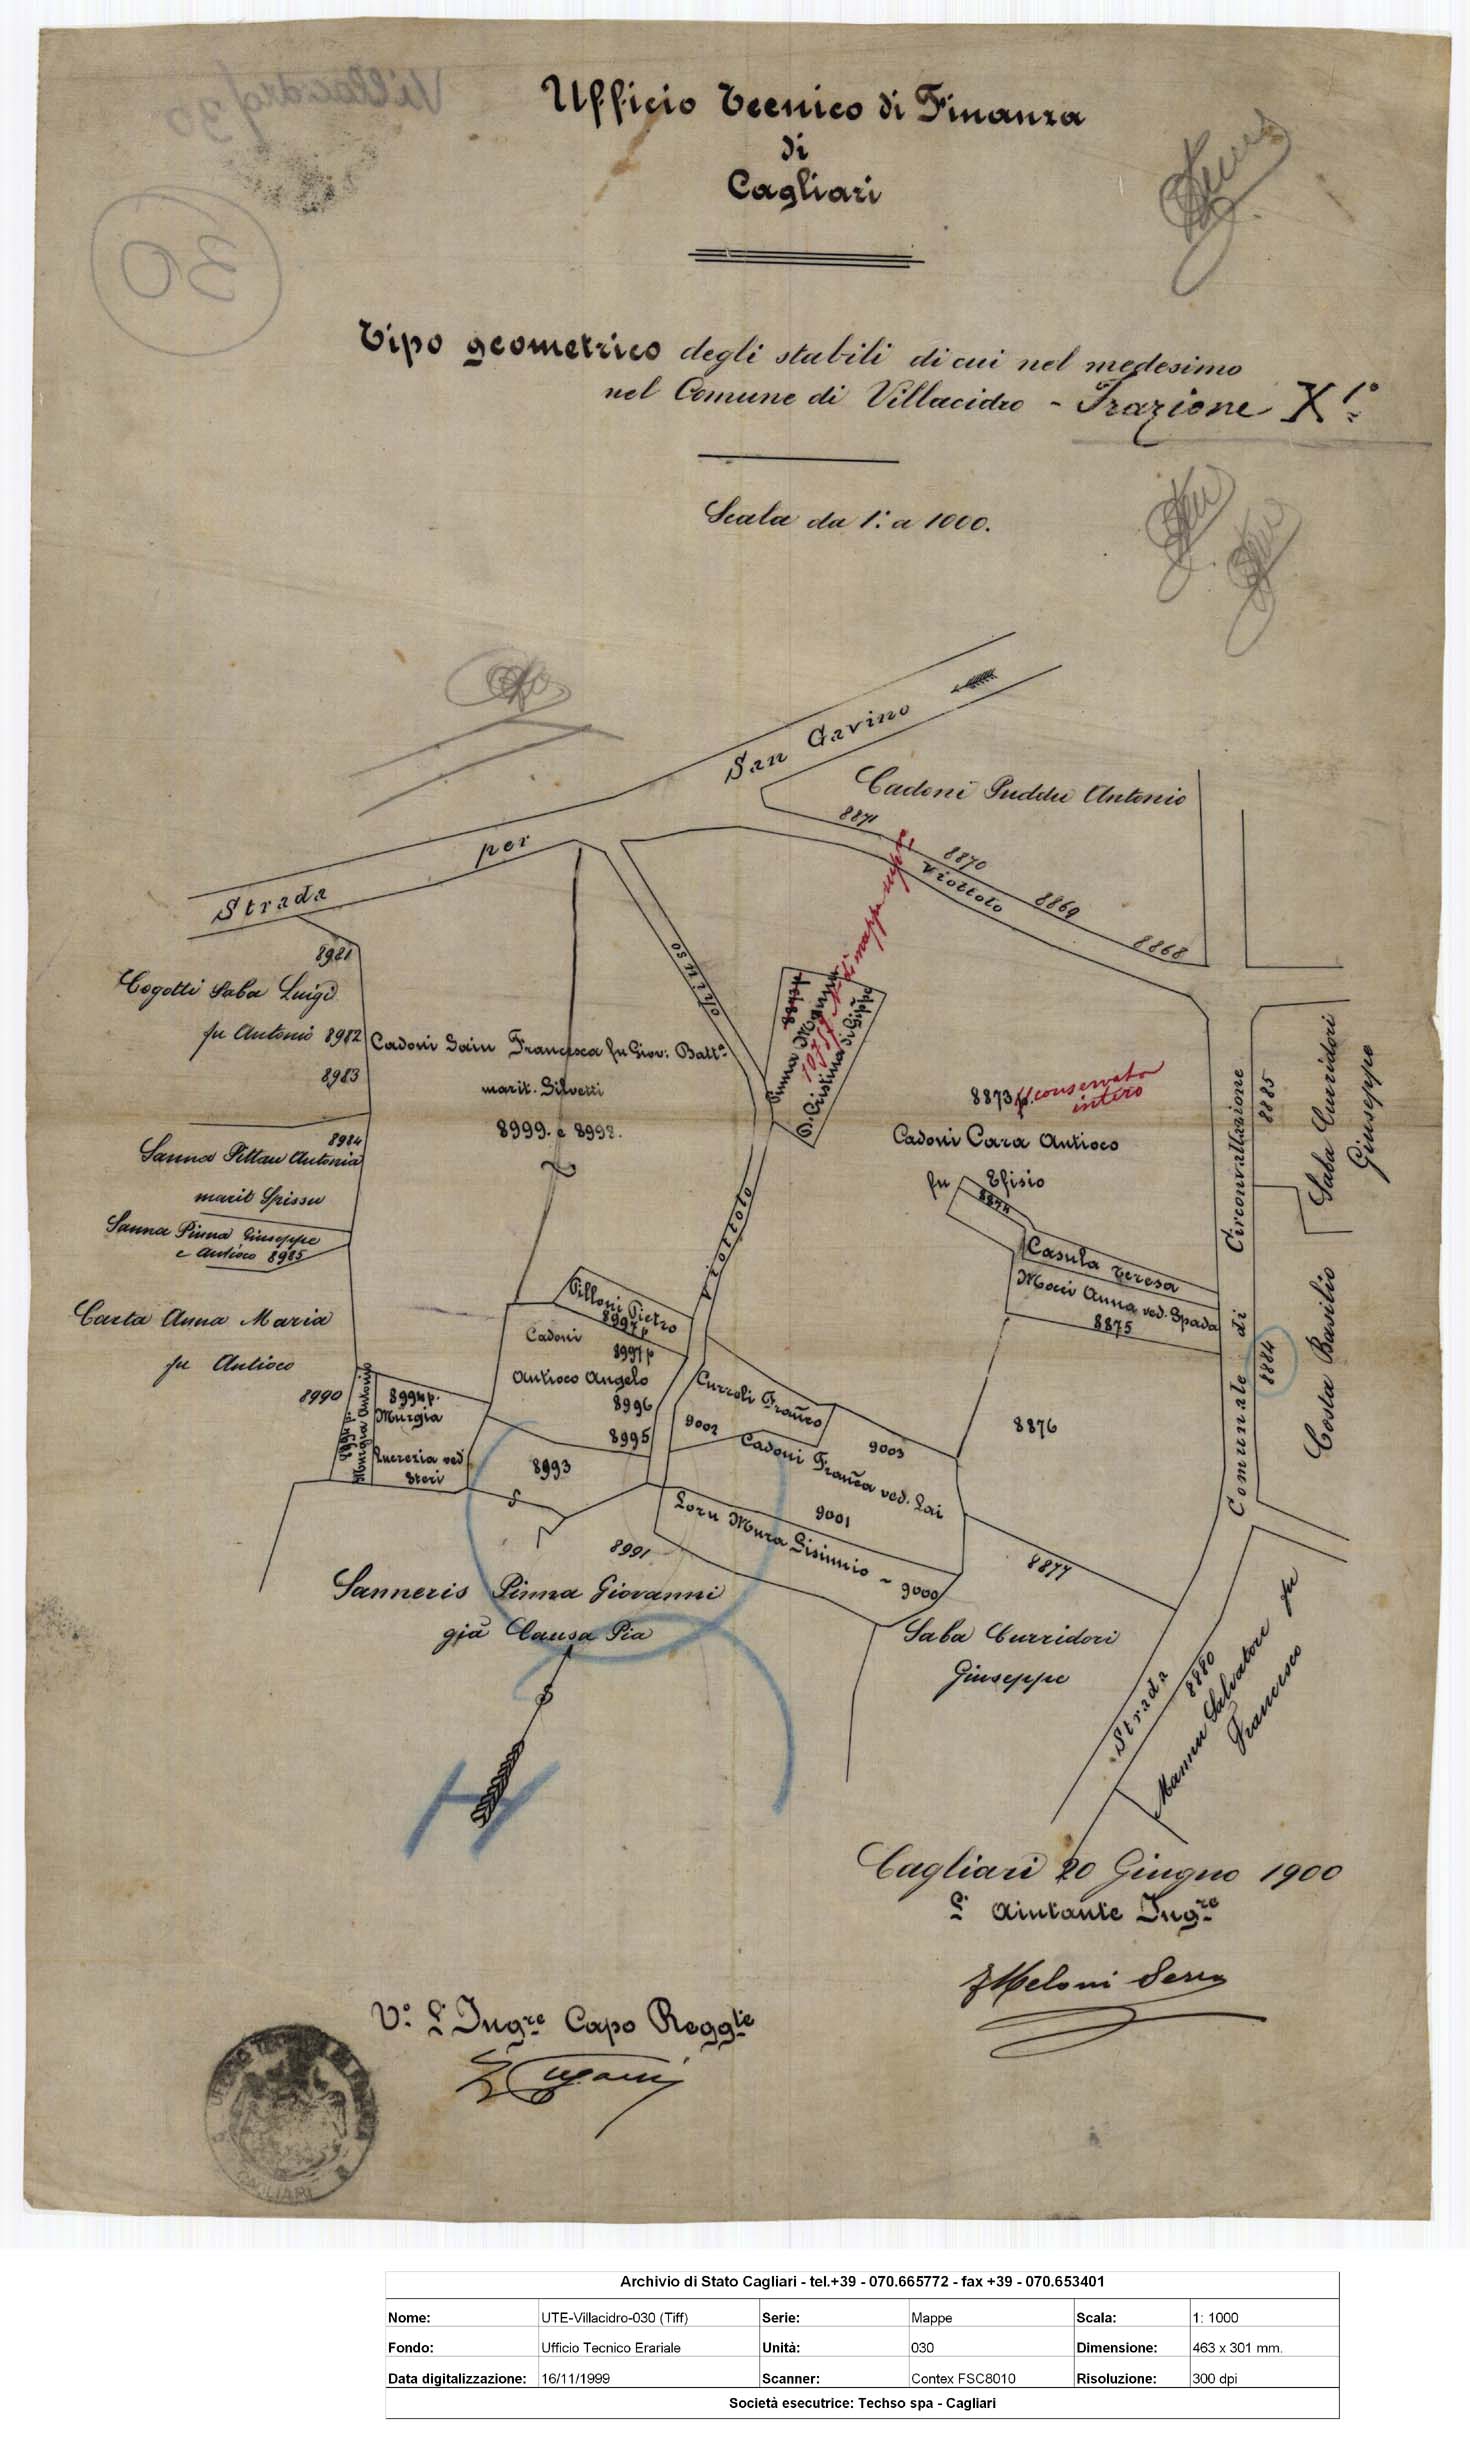 Villacidro 30
30
Ufficio Tecnico di Finanza
di
Cagliari
Tipo geometrico degli stabili di cui nel medesimo
nel Comune di Villacidro - Frazione XIª
Scala da 1: a 1000.
Strada per San Gavino
Cadoni Puddu Antonio
8871
8870
8869
8868
Viottolo
chiuso
8981
Cogotti Saba Luigi
fu Antonio 8982
8983
Cadoni Sain Francesca fu Giov: Battª
marit. Silvetti
8999. e 8998.
8984
Sanna Pittau Antonia
marit Spissu
Sanna Pinna Giuseppe
e Antioco 8985
Carta Anna Maria
fu Antioco
8990
8994 p.
Murgia Antonio
8994 p.
Murgia
Lucrezia ved
Steri
Pinna Manna
D. Cristina di Gius̃ppe
8873 p. conservato
intero
Cadoni Cara Antioco
fu Efisio
8874
Casula Teresa
Mocci Anna ved. Spada
8875
Viottolo
Pilloni Pietro
8997 p
Cadoni
8997 p
Antioco Angelo
8996
8995
8993
S
Curroli Franc̃o
9002
9003
Cadoni Franc̃a ved. Lai
9001
Loru Mura Sisinnio - 9000
8991
Sanneris Pinna Giovanni
già Causa Pia
8876
8877
Saba Curridori
Giuseppe
Strada Comunale di Circonvallazione
8885
Saba Curridori
Giuseppe
8884
Costa Basilio
8880
Mannu Salvatore fu
Francesco
Cagliari 20 Giugno 1900
L' Aiutante Ingre
Meloni Serra
V° L'Ingre Capo Reggte
UFFICIO TECNICO DI FINANZA
CAGLIARI
Archivio di Stato Cagliari - tel.+39 - 070.665772 - fax +39 - 070.653401
Nome: UTE-Villacidro-030 (Tiff) Serie: Mappe Scala: 1: 1000
Fondo: Ufficio Tecnico Erariale Unità: 030 Dimensione: 463 x 301 mm.
Data digitalizzazione: 16/11/1999 Scanner: Contex FSC8010 Risoluzione: 300 dpi
Società esecutrice: Techso spa - Cagliari